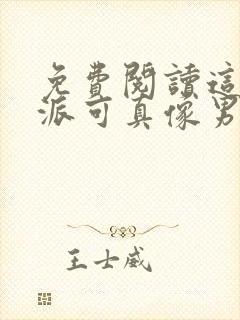 免費閱讀這
派可真像男
王士威